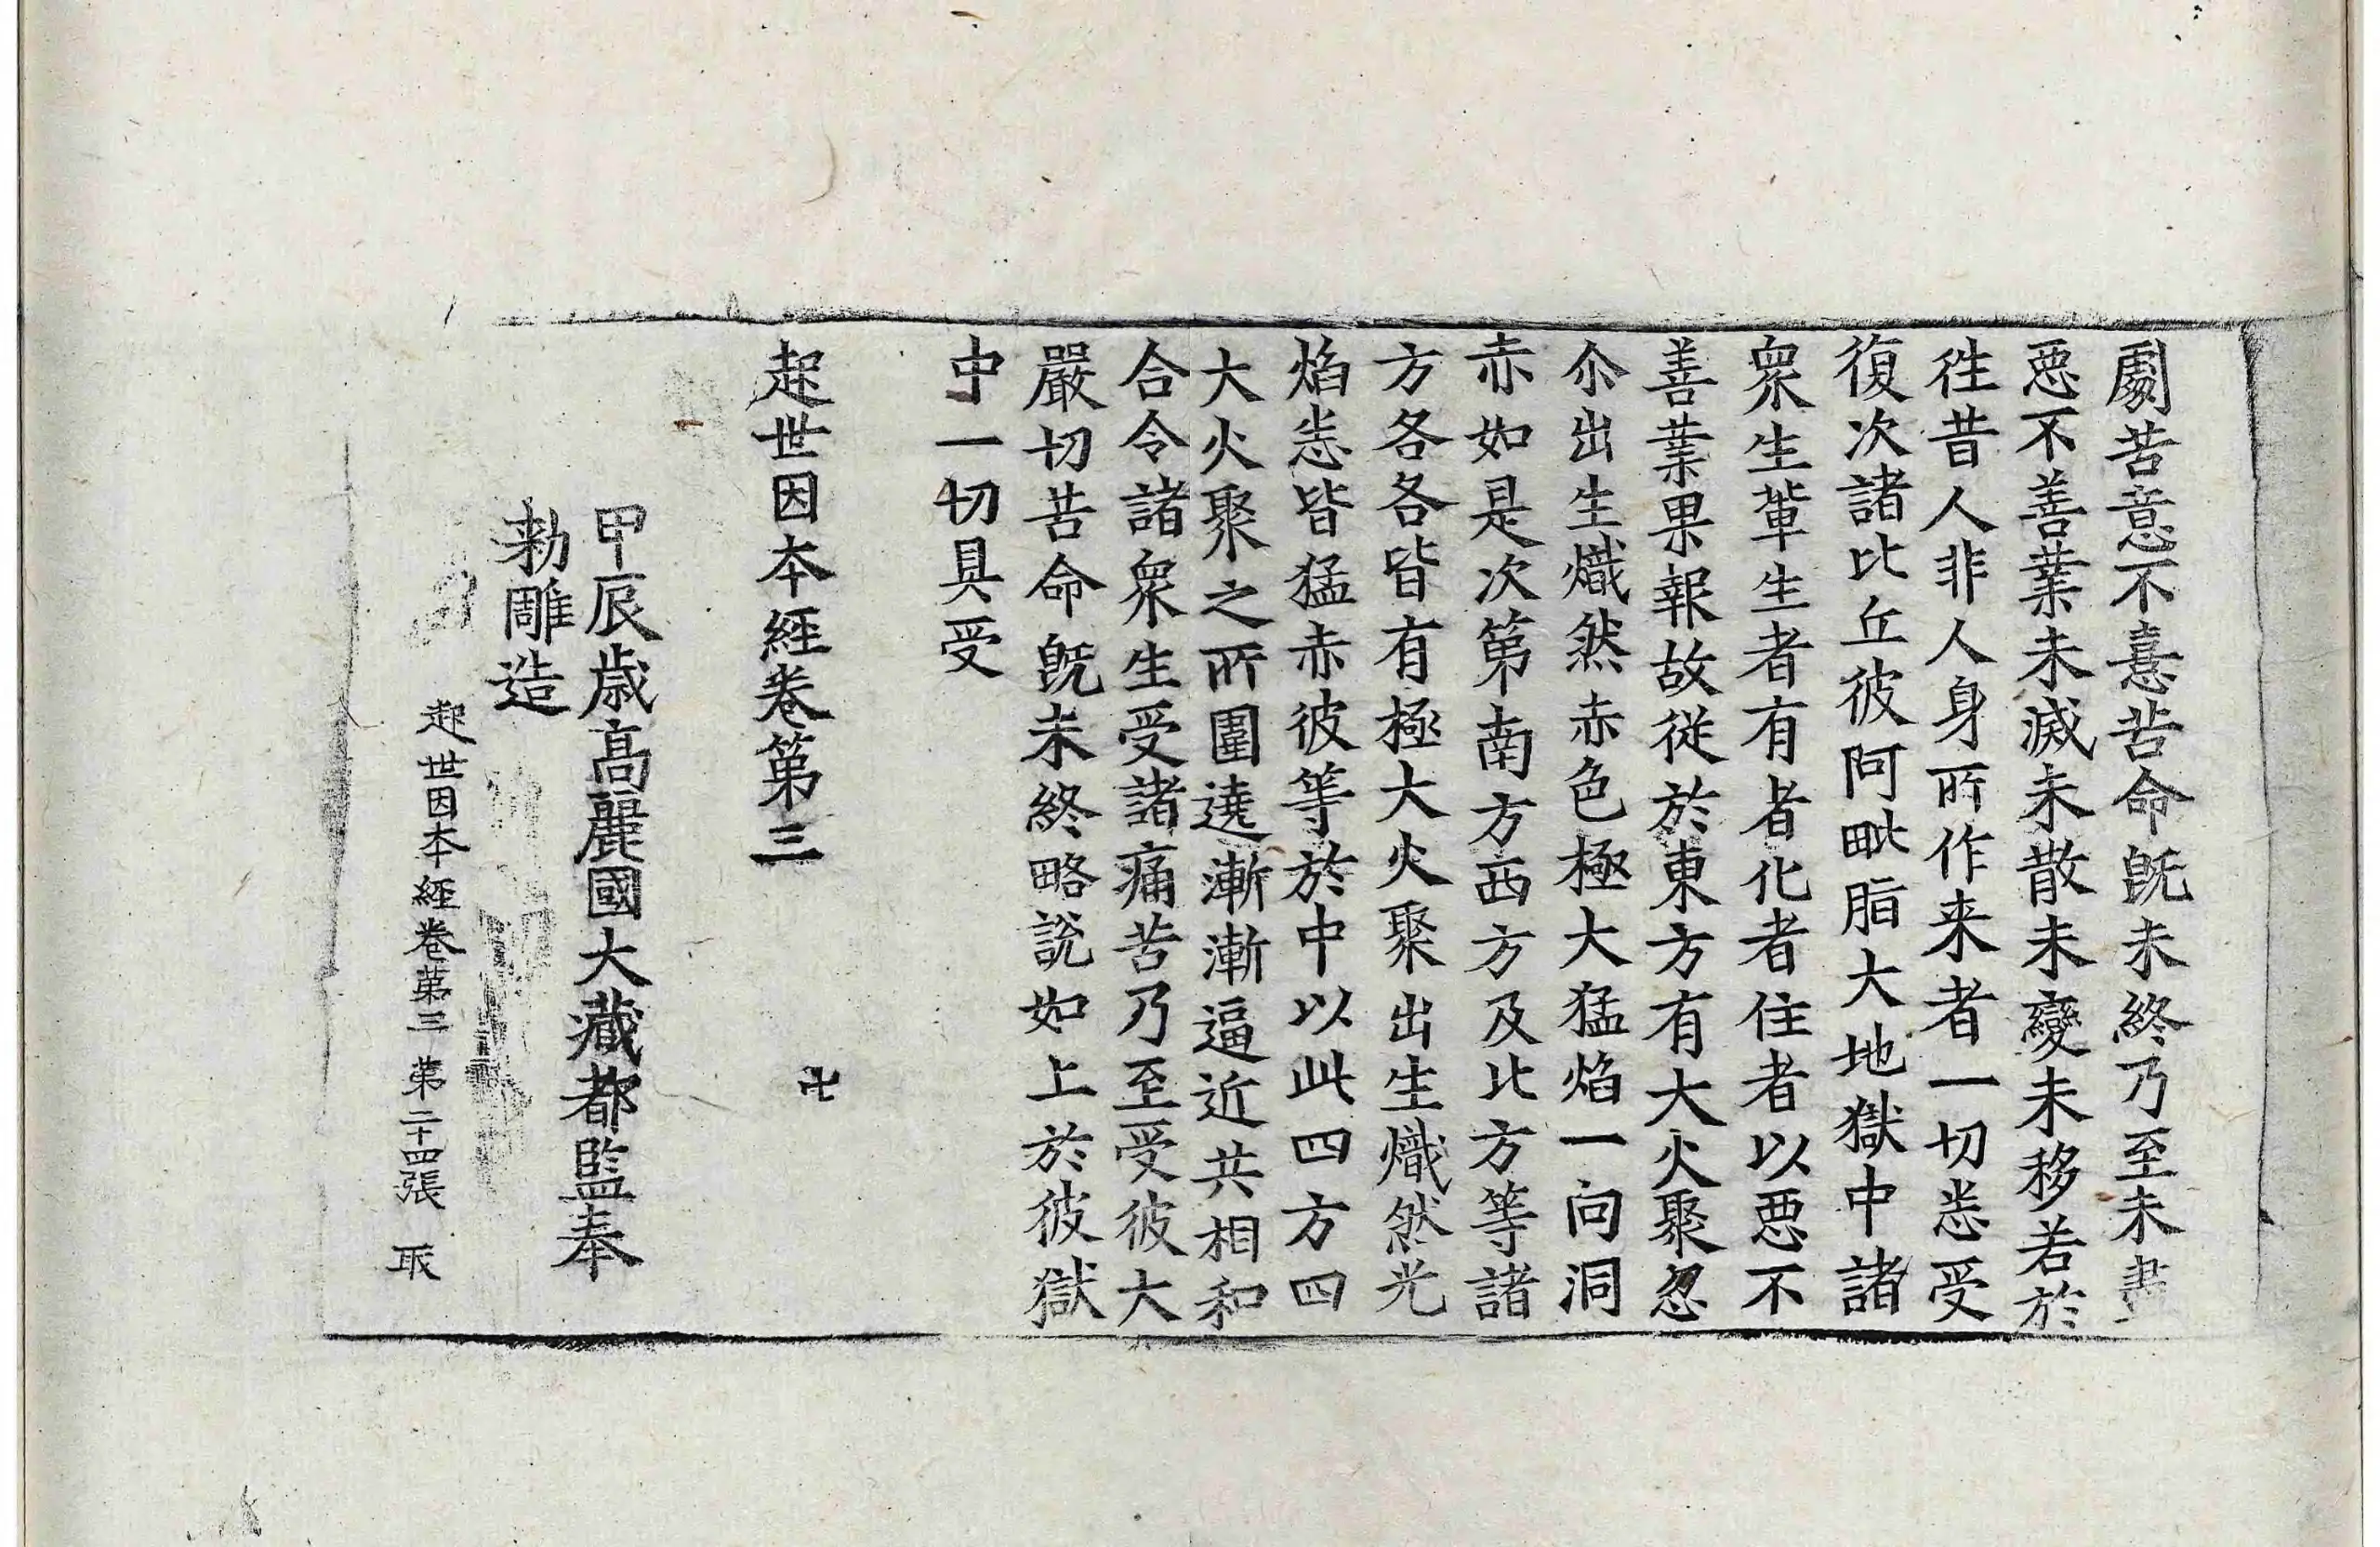 劇苦意不憙苦命旣未終乃至未盡
惡不善業未滅未散未變未移若於
徃昔人非人身所作来者一切悉受
復次諸比丘彼阿毗脂大地獄中諸
衆生軰生者有者化者住者以惡不
善業果報故從於東方有大火聚忽
尒出生熾然赤色極大猛焰一向洞
赤如是次第南方西方及北方等諸
方各各皆有極大火聚出生熾然光
焰悉皆猛赤彼等於中以此四方四
大火聚之所圍遶漸漸逼近共相和
合令諸衆生受諸痛苦乃至受彼大
嚴切苦命旣未終略說如上於彼獄
中一切具受
起世因本經卷第三 卍
甲辰歲高麗國大藏都監奉
勅雕造
起世因本經卷第三 第二十四張 取